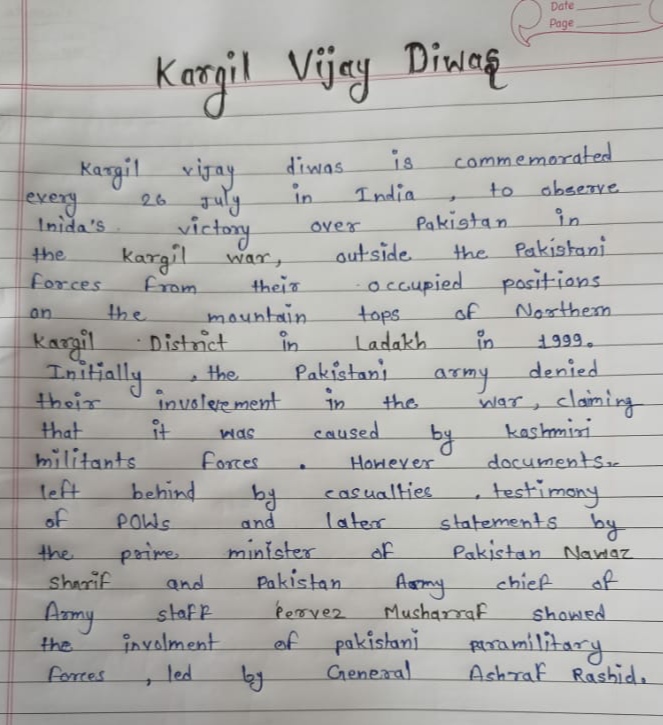 Date
Page
Kargil Vijay Diwas
Kargil vijay diwas is commemorated
every 26 July in India , to observe
Inida's victory over Pakistan in
the Kargil war, outside the Pakistani
forces from their occupied positions
on the mountain tops of Northern
Kargil District in Ladakh in 1999.
Initially , the Pakistani army denied
their involevement in the war, claiming
that it was caused by kashmiri
militants forces . However documents
left behind by casualties , testimony
of POWs and later statements by
the prime minister of Pakistan Nawaz
Sharif and Pakistan Army chief of
Army staff Pervez Musharraf showed
the involment of pakistani paramilitary
forces , led by General Ashraf Rashid.